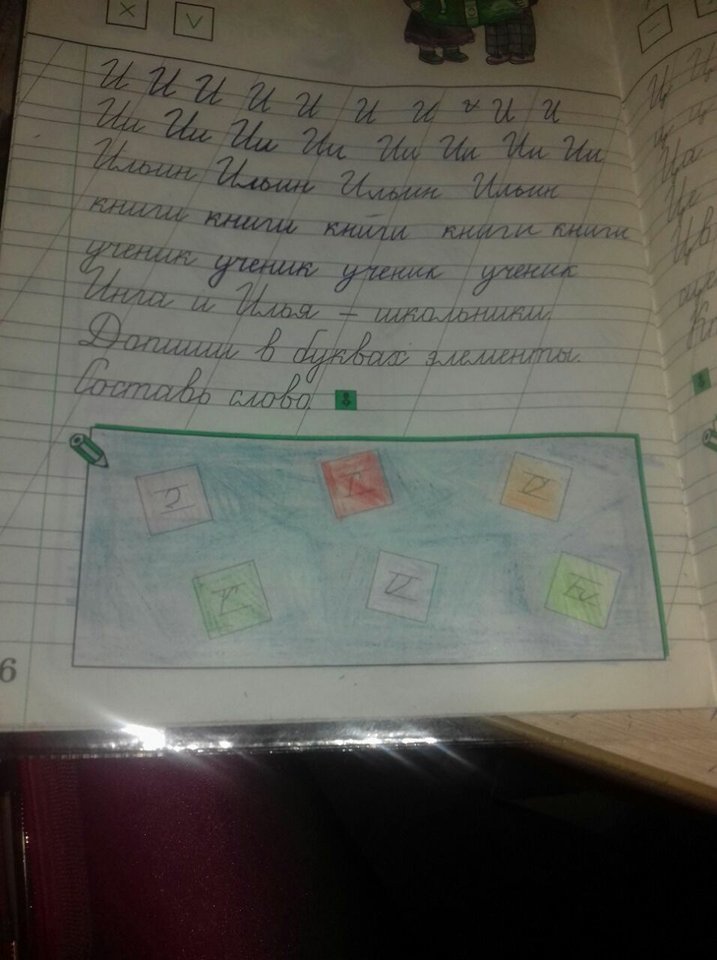 И И И И И И И и И И
Ии Ии Ии Ии Ии Ии Ии Ии
Ильин Ильин Ильин Ильин
книги книги книги книги книги
ученик ученик ученик ученик
Инга и Илья – школьники.
Допиши в буквах элементы.
Составь слово.
6
Ц Ц
ц ц
Ца
Це
Цв